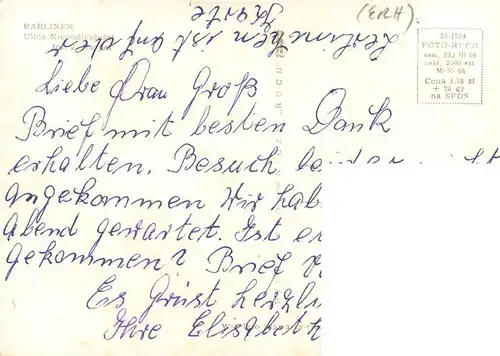 BARLINEK
Ulica Niepodległości
(ERH)
Berlinchen ist auf der
Karte
35-1584
FOTO-RUCH
zam. 232 III 66
nakł. 2000 szt
M-35 66
Cena 1,70 zł
+ 20 gr
na SFOS
Liebe Frau Groß
Brief mit besten Dank
erhalten. Besuch
angekommen Wir hab
Abend gewartet. Ist er
gekommen? Brief
Es Grüst herzli
Ihre Elisabeth